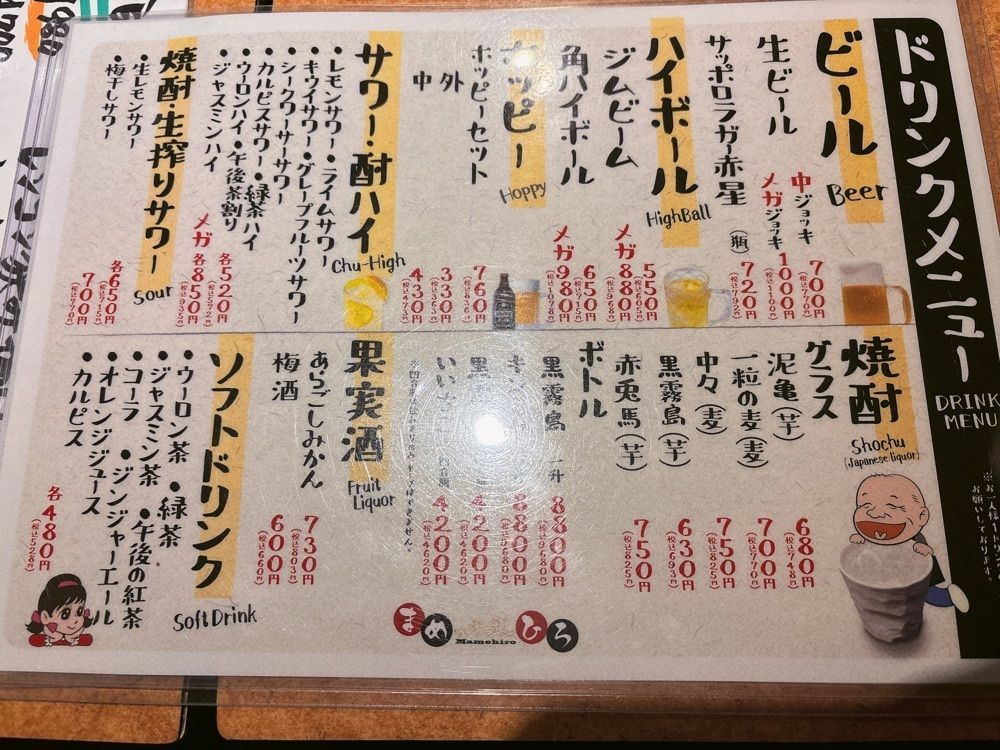 ドリンクメニュー
DRINK MENU
ビール
Beer
生ビール
中ジョッキ 700円
(税込770円)
メガジョッキ 1000円
(税込1100円)
サッポロラガー赤星
(瓶) 720円
(税込792円)
ハイボール
HighBall
ジムビーム
550円
(税込605円)
メガ 880円
(税込968円)
角ハイボール
650円
(税込715円)
メガ 980円
(税込1078円)
ホッピー
Hoppy
ホッピーセット
760円
(税込836円)
外 330円
(税込363円)
中 430円
(税込473円)
サワー・酎ハイ
Chu-High
・レモンサワー・ライムサワー
・キウイサワー・グレープフルーツサワー
・シークワーサーサワー
・カルピスサワー・緑茶ハイ
・ウーロンハイ・午後茶割り
・ジャスミンハイ
各520円
(税込572円)
メガ 各850円
(税込935円)
焼酎・生搾りサワー
Sour
・生レモンサワー
各650円
(税込715円)
・梅干しサワー
700円
(税込770円)
焼酎
Shochu
(Japanese liquor)
グラス
泥亀(芋) 680円
(税込748円)
一粒の麦(麦) 700円
(税込770円)
中々(麦) 750円
(税込825円)
黒霧島(芋) 630円
(税込693円)
赤兎馬(芋) 750円
(税込825円)
ボトル
黒霧島 一升 8800円
(税込9680円)
8800円
4200円
(税込4620円)
4200円
(税込4620円)
果実酒
Fruit Liquor
あらごしみかん 730円
(税込803円)
梅酒 600円
(税込660円)
ソフトドリンク
Soft Drink
・ウーロン茶 ・緑茶
・ジャスミン茶 ・午後の紅茶
・コーラ ・ジンジャーエール
・オレンジジュース
・カルピス
各480円
(税込528円)
まめひろ
Mamehiro